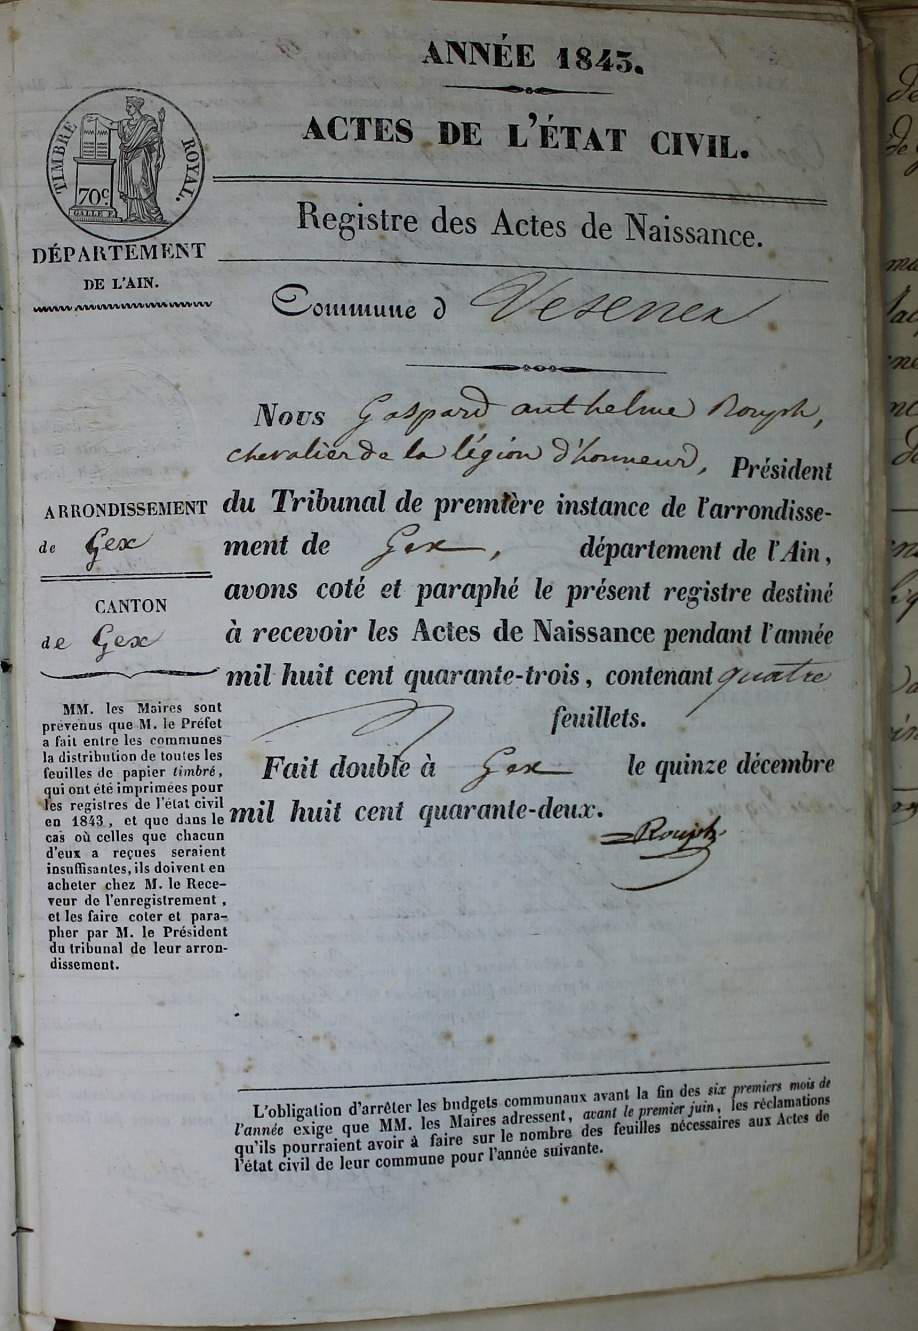 ANNÉE 1843.
ACTES DE L'ÉTAT CIVIL.
TIMBRE ROYAL.
70c
DÉPARTEMENT
DE L'AIN.
Registre des Actes de Naissance.
Commune d Vesenex
ARRONDISSEMENT
de Gex
CANTON
de Gex
MM. les Maires sont
prévenus que M. le Préfet
a fait entre les communes
la distribution de toutes les
feuilles de papier timbré,
qui ont été imprimées pour
les registres de l'état civil
en 1843, et que dans le
cas où celles que chacun
d'eux a reçues seraient
insuffisantes, ils doivent en
acheter chez M. le Rece-
veur de l'enregistrement,
et les faire coter et para-
pher par M. le Président
du tribunal de leur arron-
dissement.
Nous Gaspard anthelme Rouph,
chevalier de la légion d'honneur, Président
du Tribunal de première instance de l'arrondisse-
ment de Gex, département de l'Ain,
avons coté et paraphé le présent registre destiné
à recevoir les Actes de Naissance pendant l'année
mil huit cent quarante-trois, contenant quatre
feuillets.
Fait double à Gex le quinze décembre
mil huit cent quarante-deux.
Rouph
L'obligation d'arrêter les budgets communaux avant la fin des six premiers mois de
l'année exige que MM. les Maires adressent, avant le premier juin, les réclamations
qu'ils pourraient avoir à faire sur le nombre des feuilles nécessaires aux Actes de
l'état civil de leur commune pour l'année suivante.